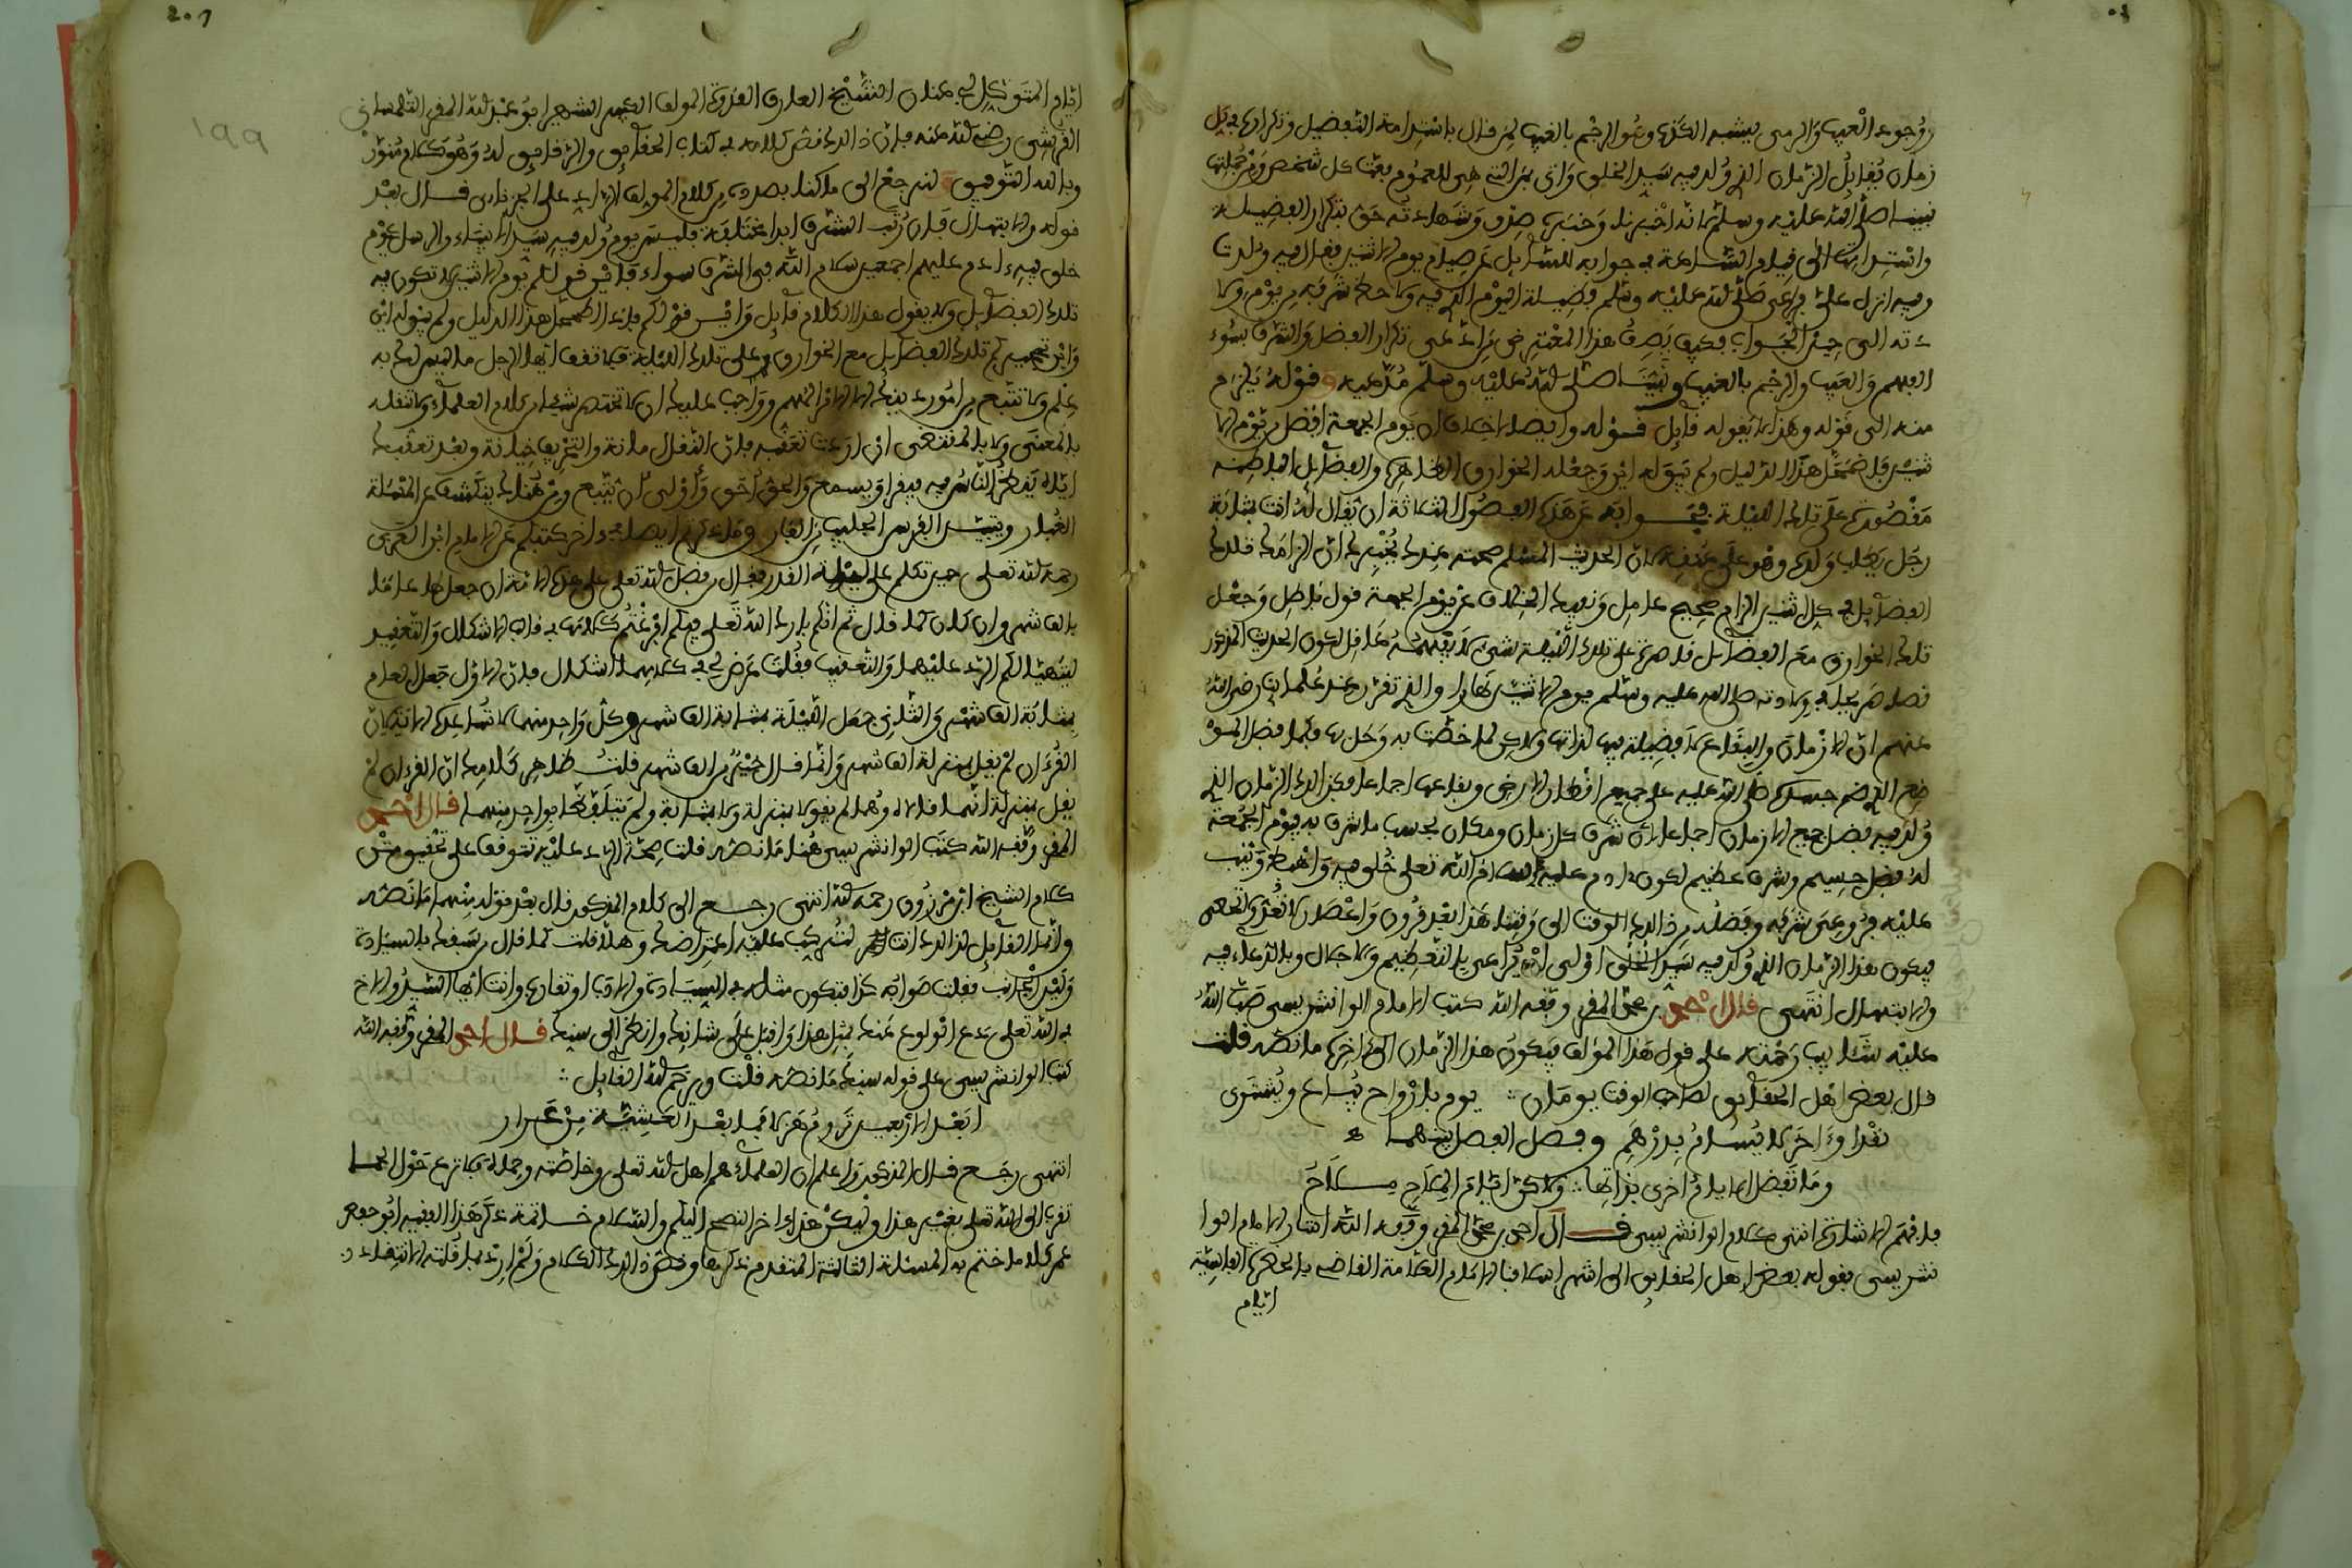 وجود الغيب والرمي يشبه الكذب وهو الرجم بالغيب لمن قال باستدامة التفضيل وتكراره في كل
زمان يقابل الزمان الذي ولد فيه سيد الخلق وأتى بمن التي هي للعموم بعثا كل شخص ومن جملتها
نبينا صلى الله عليه وسلم لأنه أخبرنا وخبره صدق وشهادته حق بتكرار الفضيلة
واستدامتها إلى قيام الساعة في جوابه للسائل عن صيام يوم الاثنين فقال فيه ولدت
وفيه أنزل علي فراعى صلى الله عليه وسلم فضيلة اليوم الذي فيه ولاحظ شرفه من يوم ولا
دته إلى حين الجواب فكيف يصف هذا المعترض من راعى تكرار الفضل والشرف بسوء
الفهم والعيب والرجم بالغيب ونبينا صلى الله عليه وسلم مدعيه وقوله يلزم
منه إلى قوله وهذا لا يقوله قائل قوله وأيضا لا خلاف أن يوم الجمعة أفضل من يوم الا
ثنين فاضمحل هذا الدليل ولم يبق له أين وجعله الخوارق الظاهرة والفضائل الباطنة
مقصورة على تلك الليلة جوابه عن هذه الفصول الثلاثة أن يقال له أنت بمثابة
رجل يطلب ولده وهو على عنقه لأن الحديث المسلم صحته عندك يخبرك أن الزامك تلك
الفضائل في كل اثنين الزام صحيح عامل ونفيك الخلاف عن يوم الجمعة قول باطل وجعل
تلك الخوارق مع الفضائل قاصرة على تلك الليلة شيء لا يفهمه عاقل لكون الحديث المذكور
نصا صريحا في ولادته صلى الله عليه وسلم يوم الاثنين نهارا والذي تقرر عند علمائنا رضي الله
عنهم أن الأزمان والبقاع لا فضيلة فيها لذاتها ولا كن لما خصت به وحل بها فكما فضل المو
ضع الذي ضم جسده صلى الله عليه على جميع أقطار الأرض وبقاعها إجماعا فكذلك الزمان الذي
ولد فيه فضل جميع الأزمان إجماعا لأن شرف كل زمان ومكان بحسب ما شرف به فيوم الجمعة
له فضل جسيم وشرف عظيم لكون ءادم عليه السلام الله تعلى خلق فيه وأهبط وتيب
عليه فروعي شرفه وفضله من ذلك الوقت إلى وقتنا هذا بعد قرون وأعصار لا تعد ولا تحصى
فيكون هذا الزمان الذي ولد فيه سيد الخلق أولى أن يراعى بالتعظيم والإجلال وبالدعاء فيه
والابتهال انتهى قال أحمد بن محمد المقري وفقه الله كتب الإمام الوانشريسي صب الله
عليه شئابيب رحمته على قول هذا المؤلف فيكون هذا الزمان إلى ءاخره ما نصه قلت
قال بعض أهل الحقائق لصاحب الوقت يومان ∴ يوم بأرواح يباع ويشترى
نقدا وءاخر لا يسام بدرهم وفصل الفصل بينهما ه
وما تفضل الأيام أخرى بذاتها ∴ ولا كن أيام الملاح ملاح
فافهم الإشارة انتهى كلام الوانشريسي قال أحمد بن محمد المقري وفقه الله أشار الإمام الوا
نشريسي بقوله بعض أهل الحقائق إلى أشهر أسلافنا الإمام العلامة القاضي بالحضرة الفاسية
أيام
201
199
أيام المتوكل أبي عنان الشيخ العارف القدوة المؤلف الكبير الشهير أبو عبد الله المقري التلمساني
القرشي رضي الله عنه فإن ذلك نص كلامه في كتاب الحقائق والرقائق له وهو كلام منور
وبالله التوفيق لنرجع إلى ما كنا بصدده من كلام المؤلف الراد على الجزنائي قال بعد
قوله والابتهال فإن رتب الشرف أبدا مختلفة فليس يوم ولد فيه سيد الأنبياء والرسل كيوم
خلق فيه ءادم عليهم أجمعين سلام الله في الشرف سواء فأين قولكم يوم الاثنين لا تكون فيه
تلك الفضائل ولا يقول هذا الكلام قائل وأين قولكم فإذا اضمحل هذا الدليل ولم يبق له أين
وأين تحجيركم تلك الفضائل مع الخوارق على تلك الليلة فلا تقف أيها الرجل ما ليس لك به
علم ولا تتبع من أمور دينك إلا الأقرب للفهم وواجب عليك أن لا تختصر شيئا من كلام العلماء ولا تنقله
بالمعنى ولا بالمقتضى إن أردت تعقبه فإن النقل مانة والتحريف خيانة وبعد تعقبك
إياه ينظر الناس فيه فيقرأ ويسمع والحق أحق وأولى أن يتبع ومن هنالك ينكشف عن المسئلة
الغبار ويتبين الفرس الجليب من الفار وما ذكرتم أيضا في ءاخر كتبكم عن الإمام ابن العربي
رحمه الله تعلى حين تكلم على ليلة القدر فقال من فضل الله تعلى على هذه الأمة أن جعل لها عاما
بألف شهر وإن كان كما قال ثم إنكم بارك الله تعلى فيكم أفرغتم كلامه في قالب الإشكال والتعقيد
ليتهيأ لكم الرد عليهما والتعقيب فقلت عرض لي في كلامهما إشكال فإن الأول جعل العام
بمثابة ألف شهر والثاني جعل الليلة بمثابة ألف شهر وكل واحد منهما لا تساعده الآية لأن
القرءان لم يقل بمنزلة ألف شهر وإنما قال خير من ألف شهر قلت ظاهر كلامك أن القرءان لم
يقل بمنزلة إنما قالاه وهما لم يقولا بمنزلة ولا بمثابة ولم يتلفظا بواحد منهما قال أحمد
المقري وفقه الله كتب الوانشريسي هنا ما نصه قلت صحة الرد عليه تتوقف على تحقيق متن
كلام الشيخ ابن مرزوق رحمه الله انتهى رجع إلى كلام المذكور قال بعد قوله منهما ما نصه
وإنما القائل لذلك أنت لتركب عليه اعتراضك وهلا قلت كما قال من سبقك بالسيادة
ولين الجانب فقلت صوابه كذا فتكون مثله في السيادة والأدب أو تقاربه وأنت أيها السيد والأخ
في الله تعلى دع الولوع عنك بمثل هذا وأقبل على شأنك وانظر إلى سنك قال أحمد المقري وفقه الله
كتب الوانشريسي على قوله سنك ما نصه قلت ويرحم الله القائل ∴
أبعد الأربعين تروم هزلا فما بعد العشية من عرار
انتهى رجع قال المذكور واعلم أن العلماء هم أهل الله تعلى وخاصته وحملة فلا ترع حول الحمى
تقربا إلى الله تعلى بغير هذا وليكن هذا ءاخر النصح إليكم والسلام خاتمة ذكر هذا الفقيه أبو جعفر
عمر كلاما ختم به المسئلة الثالثة المتقدم ذكرها ونص ذلك الكلام ولم أرد بما قلته الانتقاد